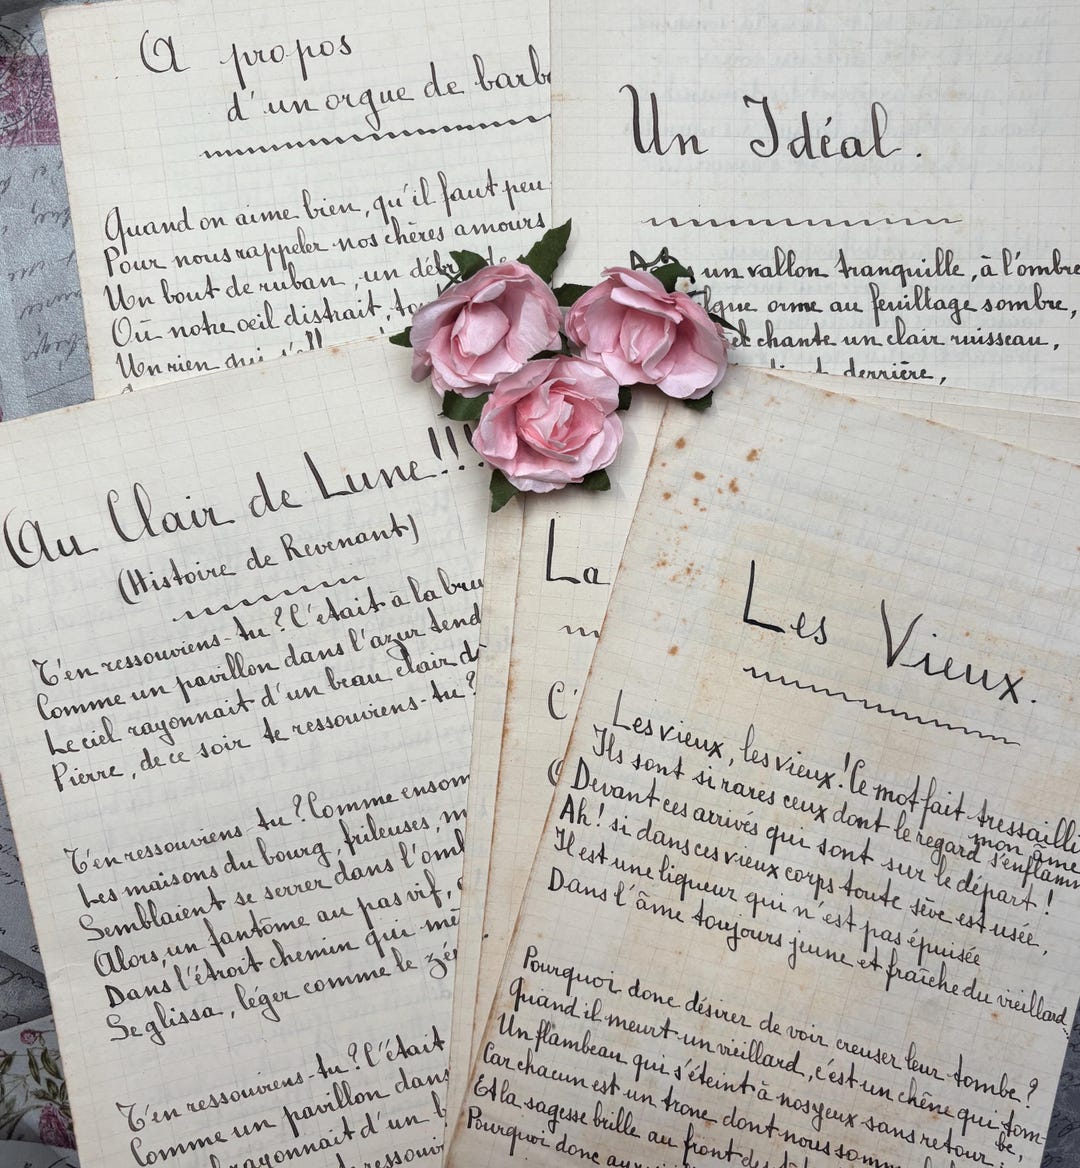 A propos
d'un orgue de barb
Quand on aime bien, qu'il faut peu
Pour nous rappeler nos chères amours
Un bout de ruban, un
Où notre œil distrait,
Un rien qui
Un Idéal.
un vallon tranquille, à l'ombre
orme au feuillage sombre,
et chante un clair ruisseau,
derrière,
Au Clair de Lune!!!
(Histoire de Revenant)
T'en ressouviens-tu? C'était à la bru
Comme un pavillon dans l'azur tend
Le ciel rayonnait d'un beau clair d
Pierre, de ce soir te ressouviens-tu?
T'en ressouviens-tu? Comme ensom
Les maisons du bourg, frileuses, m
Semblaient se serrer dans l'omb
Alors, un fantôme au pas vif,
Dans l'étroit chemin qui mè
Se glissa, léger comme le zé
T'en ressouviens-tu? C'était
Comme un pavillon dans
rayonnait d'un b
ressouv
La
C'
Les Vieux.
Les vieux, les vieux! Ce mot fait tressailli
mon âme
Ils sont si rares ceux dont le regard s'enflamm
Devant ces arrivés qui sont sur le départ!
Ah! si dans ces vieux corps toute sève est usée,
Il est une liqueur qui n'est pas épuisée
Dans l'âme toujours jeune et fraîche du vieillard
Pourquoi donc désirer de voir creuser leur tombe?
Quand il meurt un vieillard, c'est un chêne qui tom-
be,
Un flambeau qui s'éteint à nos yeux sans retour.
Car chacun est un tronc dont nous somm
Et la sagesse brille au front des
Pourquoi donc aux